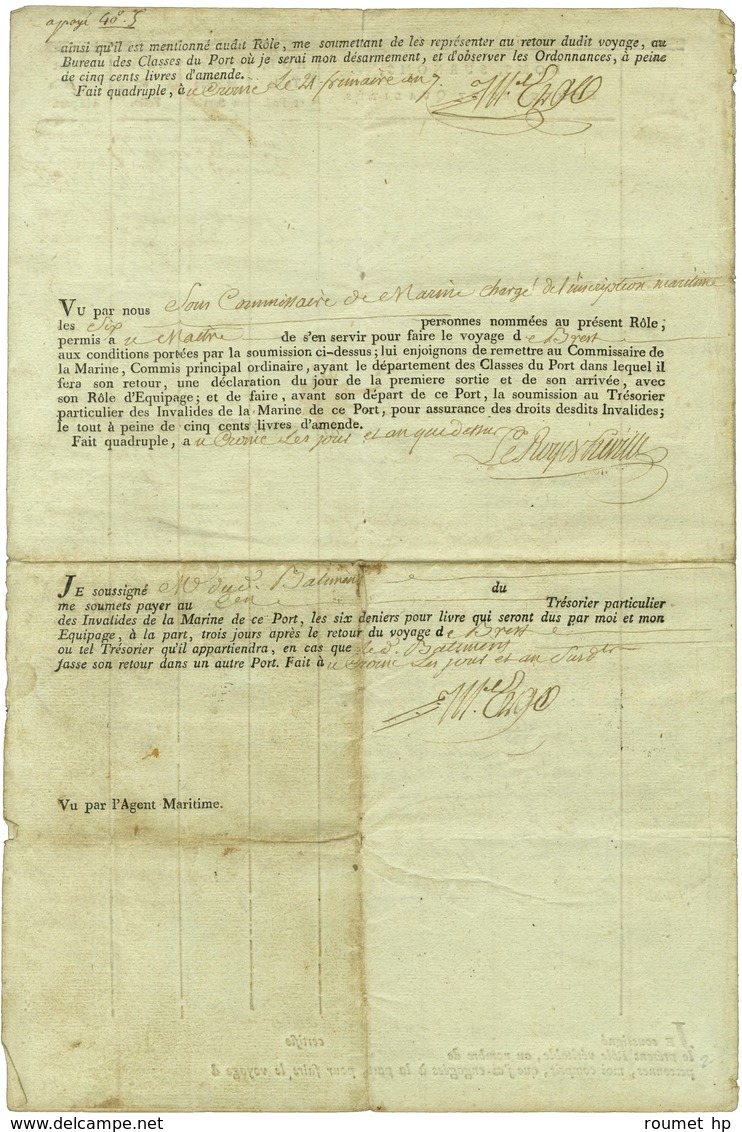 a payé 40 s
ainsi qu'il est mentionné audit Rôle, me soumettant de les représenter au retour dudit voyage, au
Bureau des Classes du Port où je serai mon désarmement, et d'observer les Ordonnances, à peine
de cinq cents livres d'amende.
Fait quadruple, à u Croisic Le 21 frimaire an 7.
VU par nous Sous Commissaire de Marine chargé de l'inscription maritime
les Six personnes nommées au présent Rôle;
permis a u Maitre de s'en servir pour faire le voyage d e Brest
aux conditions portées par la soumission ci-dessus; lui enjoignons de remettre au Commissaire de
la Marine, Commis principal ordinaire, ayant le département des Classes du Port dans lequel il
fera son retour, une déclaration du jour de la premiere sortie et de son arrivée, avec
son Rôle d'Equipage; et de faire, avant son départ de ce Port, la soumission au Trésorier
particulier des Invalides de la Marine de ce Port, pour assurance des droits desdits Invalides;
le tout à peine de cinq cents livres d'amende.
Fait quadruple, a u Croisic Les jour et an que dessus
JE soussigné M.e dud. Batiment du
me soumets payer au Trésorier particulier
des Invalides de la Marine de ce Port, les six deniers pour livre qui seront dus par moi et mon
Equipage, à la part, trois jours après le retour du voyage d e Brest
ou tel Trésorier qu'il appartiendra, en cas que le d. Batiment
fasse son retour dans un autre Port. Fait à u Croisic Les jour et an Susd.
Vu par l'Agent Maritime.
JE soussigné certifie
le présent Rôle véritable, au nombre de
personnes, moi compris, que j'ai engagées à la part, pour faire le voyage d
roumet hp